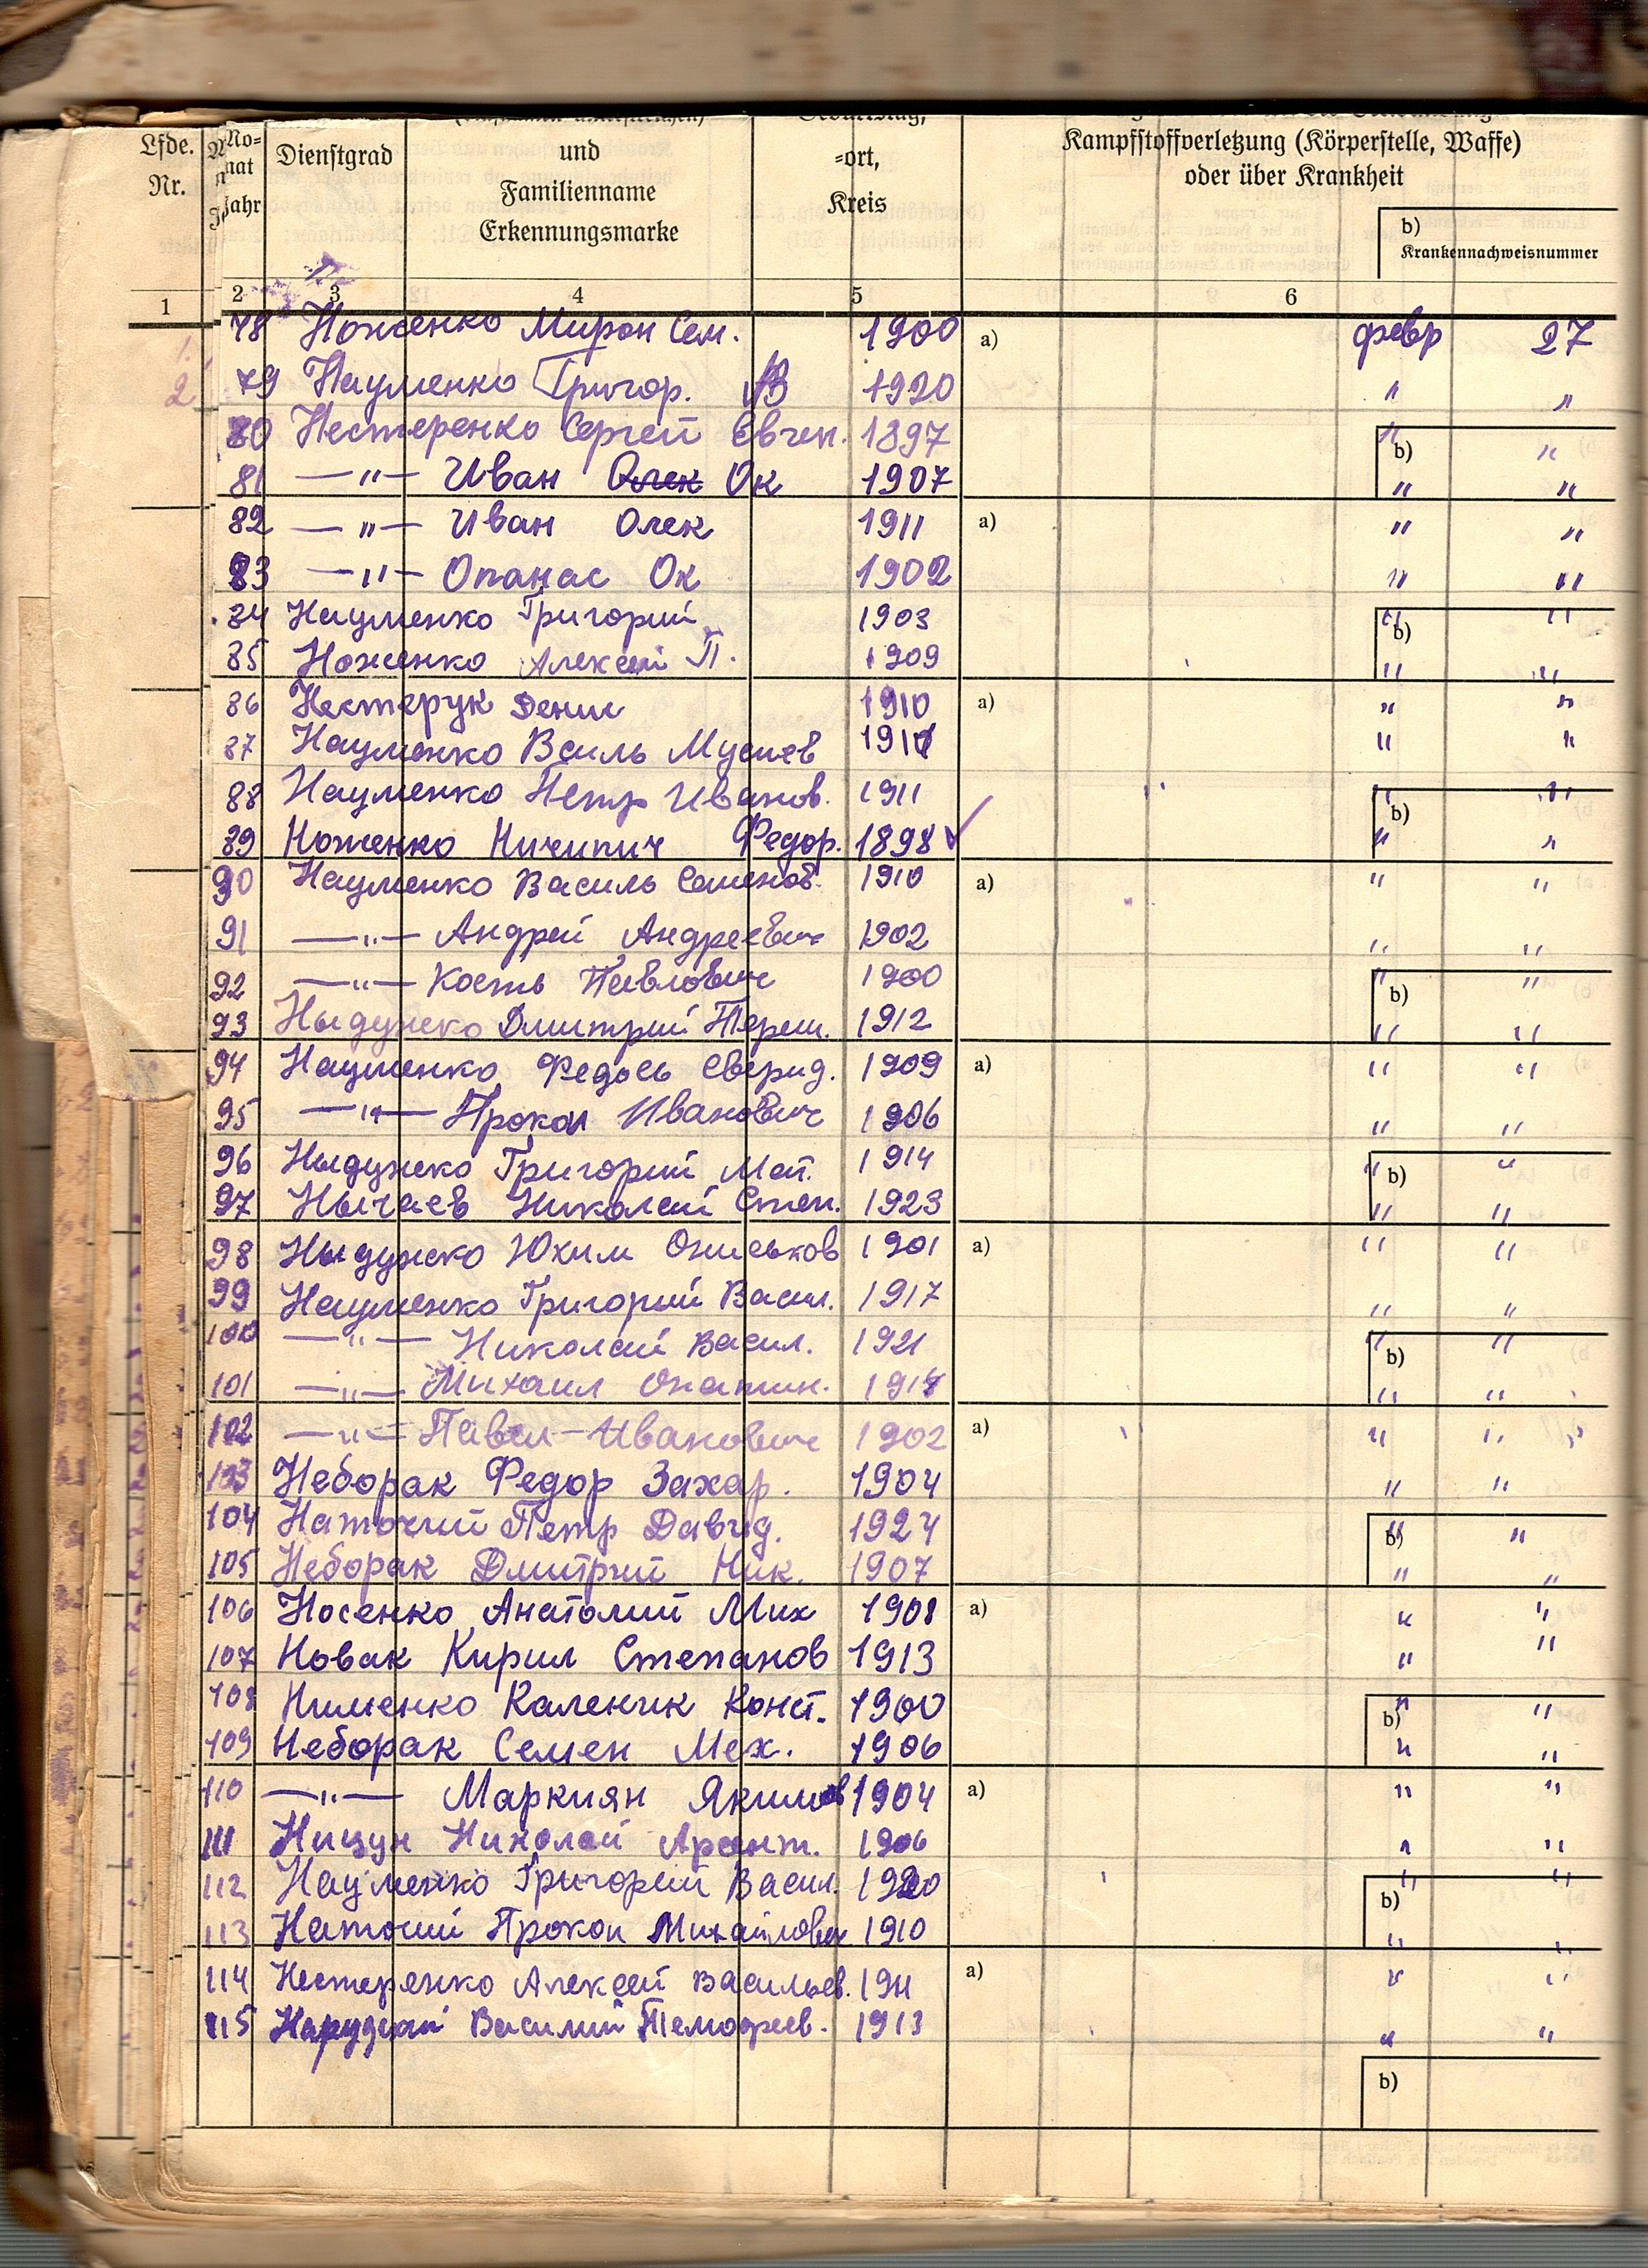 Lfde. Nr.
Mo=nat
Jahr
Dienstgrad
und
Familienname
Erkennungsmarke
=ort,
Kreis
Kampfstoffverletzung (Körperstelle, Waffe)
oder über Krankheit
b)
Krankennachweisnummer
1 2 3 4 5 6
78 Ноженко Мирон Сем. 1900 a) февр 27
79 Науменко Григор. 1920 " "
80 Нестеренко Сергей Евген. 1897 " b) "
81 —"— Иван Олек Ок 1907 " "
82 —"— Иван Олек 1911 a) " "
83 —"— Опанас Ок 1902 " "
84 Науменко Григорий 1903 " b) "
85 Ноженко Алексей П. 1909 " "
86 Нестерук Денис 1910 a) " "
87 Науменко Василь Мусиев " "
88 Науменко Петр Иванов. 1911 " b) "
89 Ноженко Ничипир Федор. 1898 " "
90 Науменко Василь Семенов. 1910 a) " "
91 —"— Андрей Андреевич 1902 " "
92 —"— Кость Павлович 1900 " b) "
93 Дмитрий Тереш. 1912 " "
94 Науменко Федось Сверид. 1909 a) " "
95 —"— Прокоп Иванович 1906 " "
96 Григорий Мат. 1914 " b) "
97 Нычаев Николай Степ. 1923 " "
98 Юхим Ониськов 1901 a) " "
99 Науменко Григорий Васил. 1917 " "
100 —"— Николай Васил. 1921 " b) "
101 —"— Михаил " "
102 —"— Павел Иванович 1902 a) " "
103 Неборак Федор Захар. 1904 " "
104 Наточий Петр Давид. 1924 " b) "
105 Неборак Дмитрий Ник. 1907 " "
106 Носенко Анатолий Мих 1908 a) " "
107 Новак Кирил Степанов 1913 " "
108 Нименко Каленик Конст. 1900 " b) "
109 Неборак Семен Мех. 1906 " "
110 —"— Маркиян Якимов 1904 a) " "
111 Нищун Николай Арсент. 1906 " "
112 Науменко Григорий Васил. 1920 " b) "
113 Наточий Прокоп Михайлович 1910 " "
114 Нестеренко Алексей Васильев. 1911 a) " "
115 Василий Темофеев. 1913 " "
b)